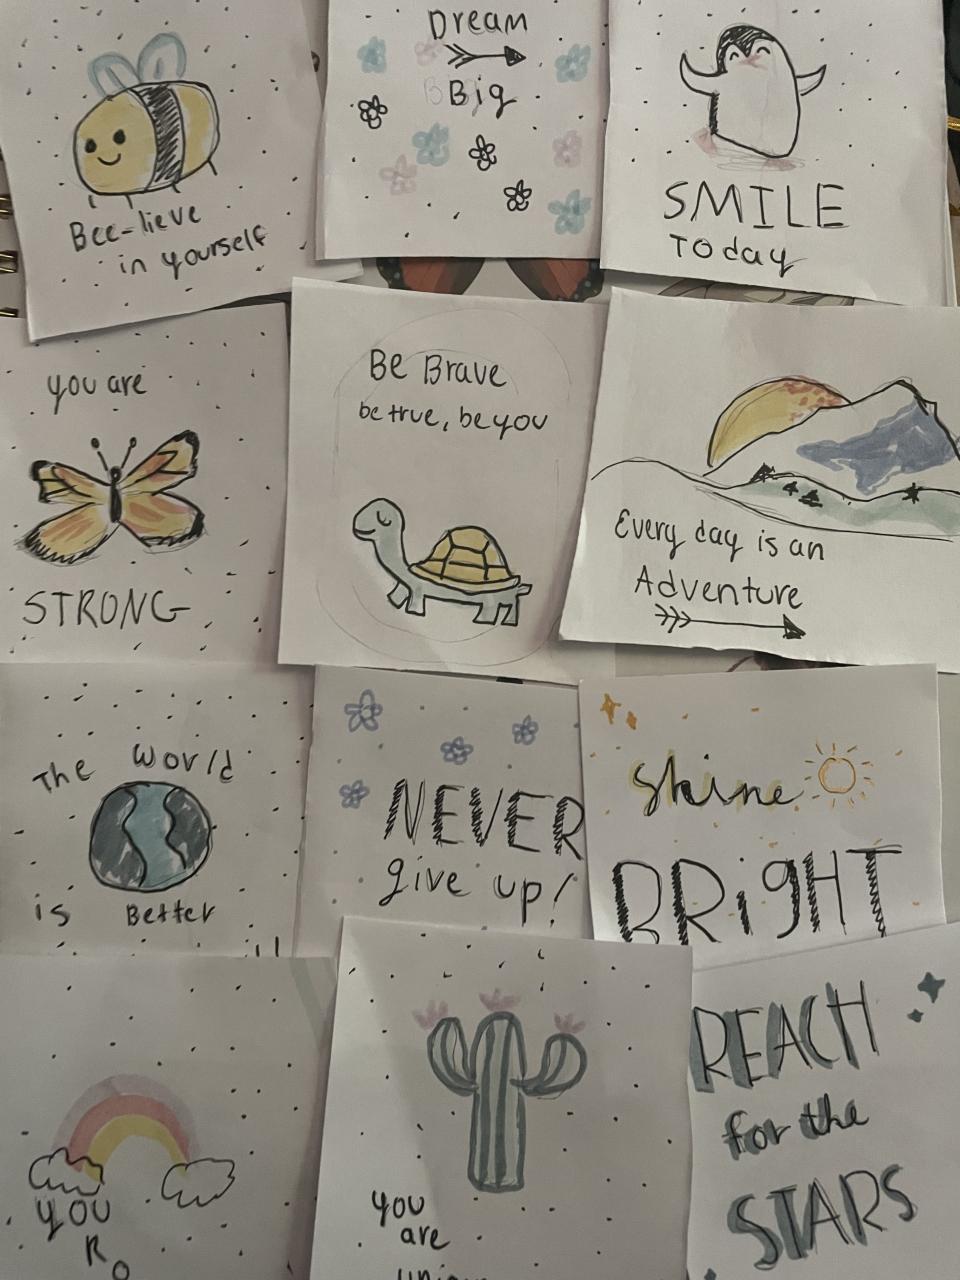 Bee-lieve
in yourself
Dream
Big
SMILE
Today
you are
STRONG
Be Brave
be true, be you
Every day is an
Adventure
The World
is Better
NEVER
give up!
shine
BRiGHT
YOU
R
you
are
REACH
for the
STARS